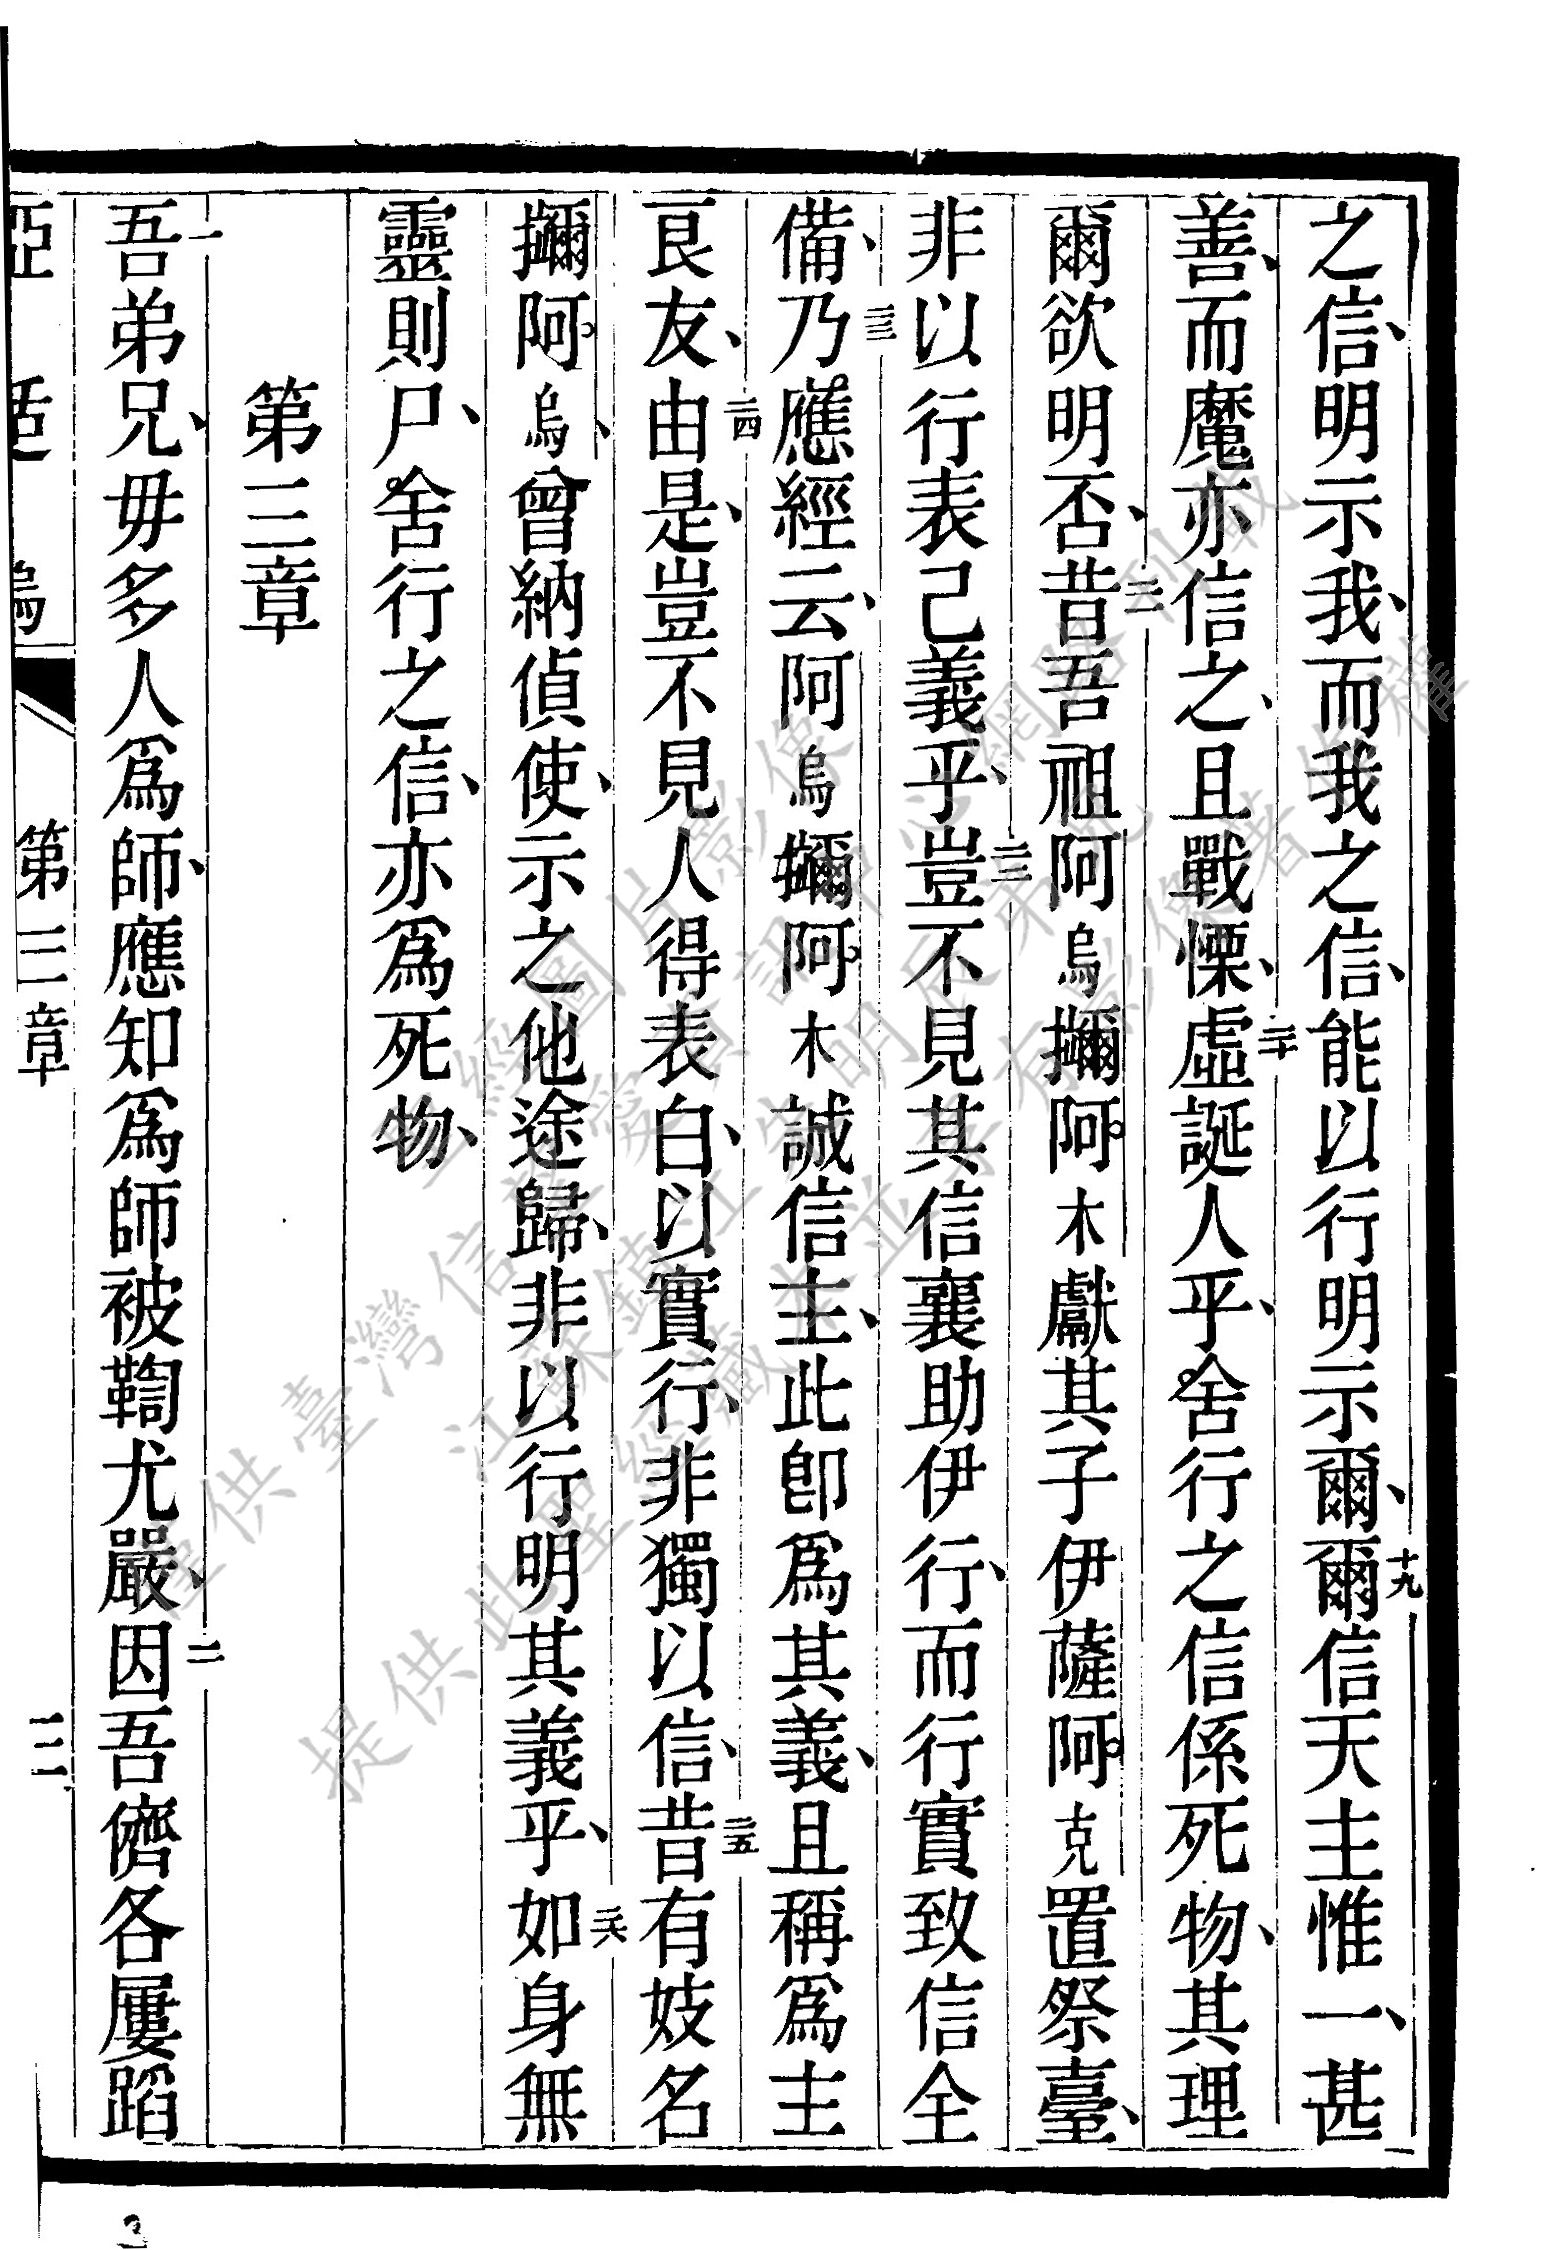 之信、明示我、而我之信、能以行明示爾、十九爾信天主惟一、甚
善、而魔亦信之、且戰慄、二十虛誕人乎、舍行之信係死物、其理
爾欲明否、二一昔吾祖阿烏攧阿木獻其子伊薩阿克置祭臺、
非以行表己義乎、二二豈不見其信襄助伊行、而行實致信全
備、二三乃應經云、阿烏攧阿木誠信主、此卽爲其義、且稱爲主
良友、二四由是、豈不見人得表白、以實行、非獨以信、二五昔有妓名
攧阿烏、曾納偵使、示之他途歸、非以行明其義乎、二六如身無
靈則尸、舍行之信、亦爲死物、
第三章
一吾弟兄、毋多人爲師、應知爲師被鞫尤嚴、二因吾儕各屢蹈
第三章
三
3